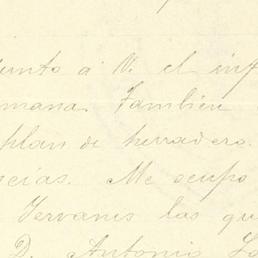 junto á V. el inf
mana. Tambien
plan de herradero.
cias. Me ocupo
Yervanes las qu
D. Antonio Lo